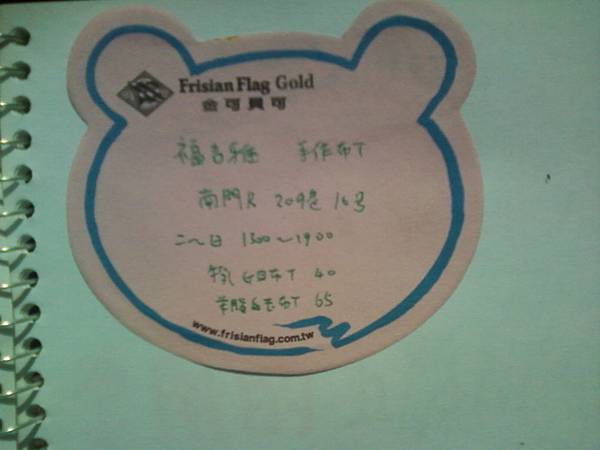 Frisian Flag Gold
金可貝可
福吉雅 手作布丁
南門R 209巷 16号
二~日 1300~1900
鮮乳 布丁 40
布丁 65
www.frisianflag.com.tw